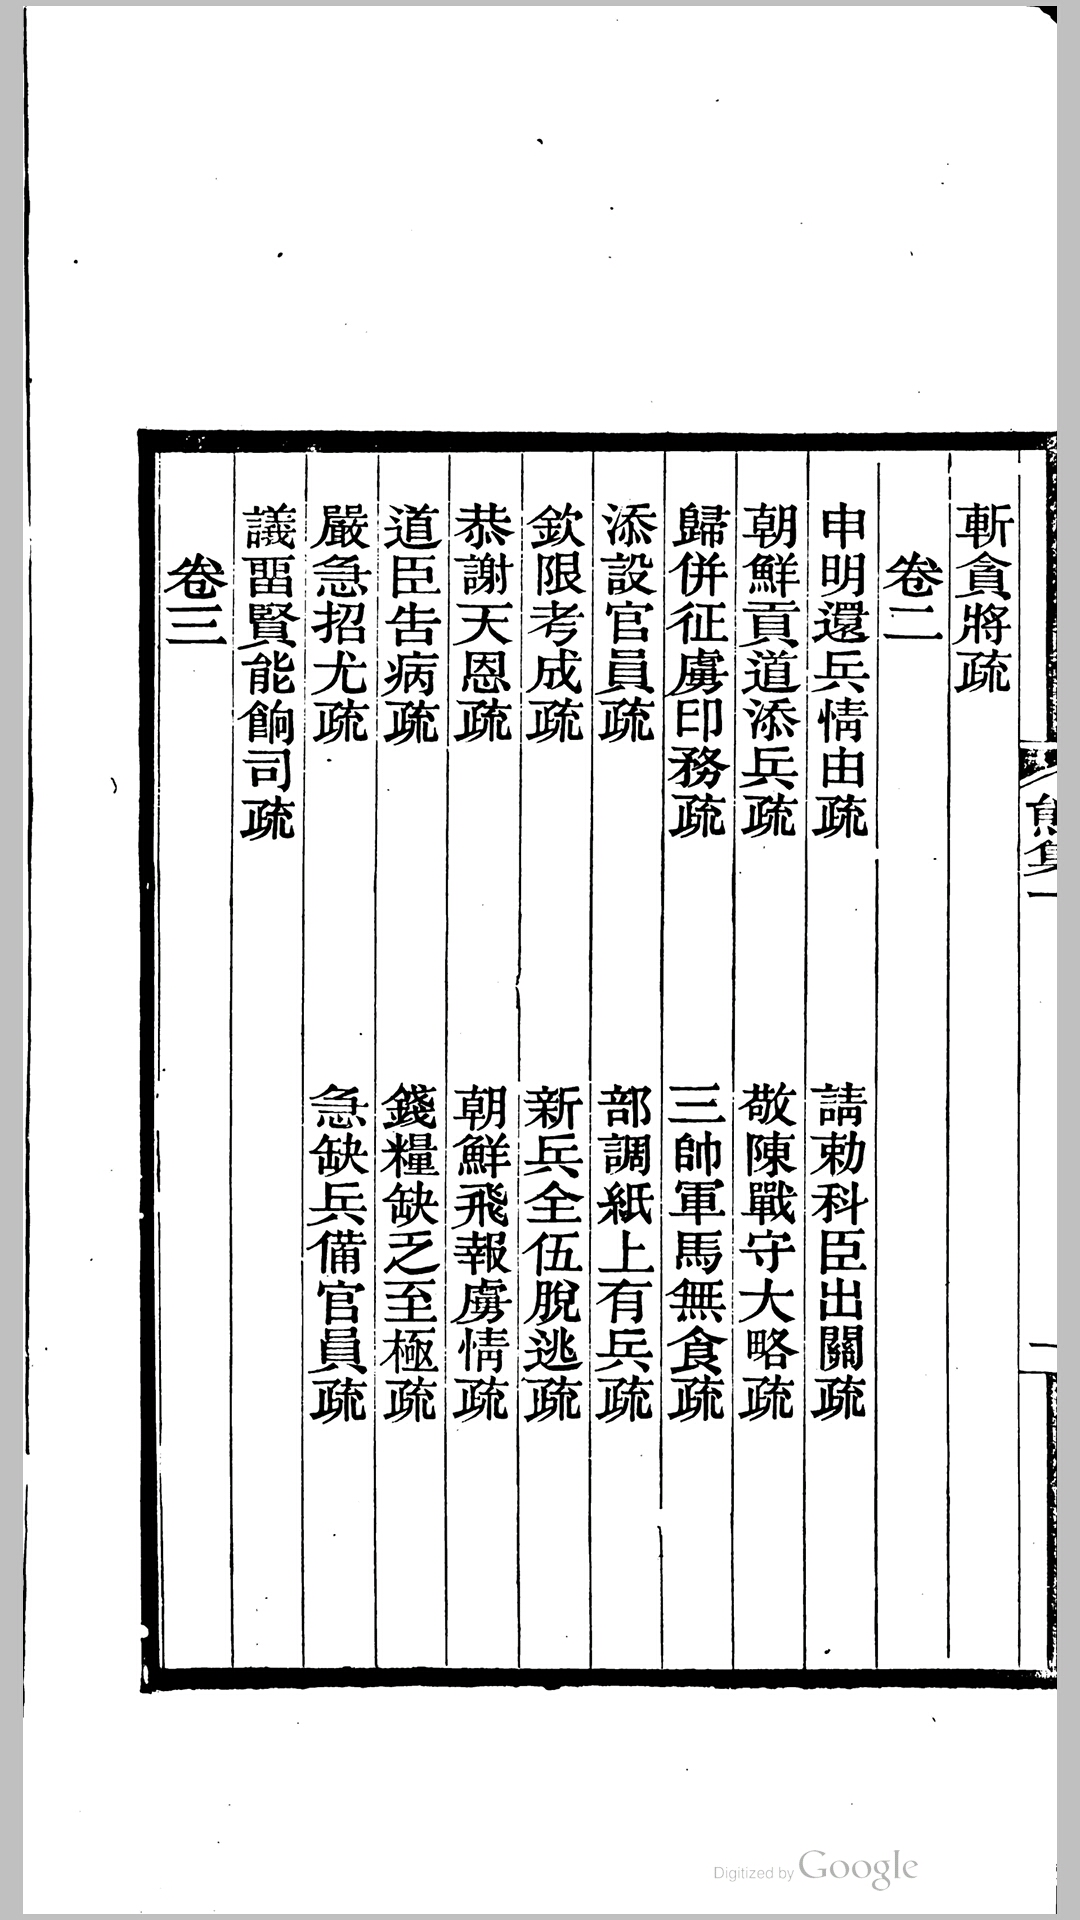 斬貪將疏
卷二
申明還兵情由疏　請勅科臣出關疏
朝鮮貢道添兵疏　敬陳戰守大略疏
歸併征虜印務疏　三帥軍馬無食疏
添設官員疏　部調紙上有兵疏
欽限考成疏　新兵全伍脫逃疏
恭謝天恩疏　朝鮮飛報虜情疏
道臣告病疏　錢糧缺乏至極疏
嚴急招尤疏　急缺兵備官員疏
議畱賢能餉司疏
卷三
Digitized by Google